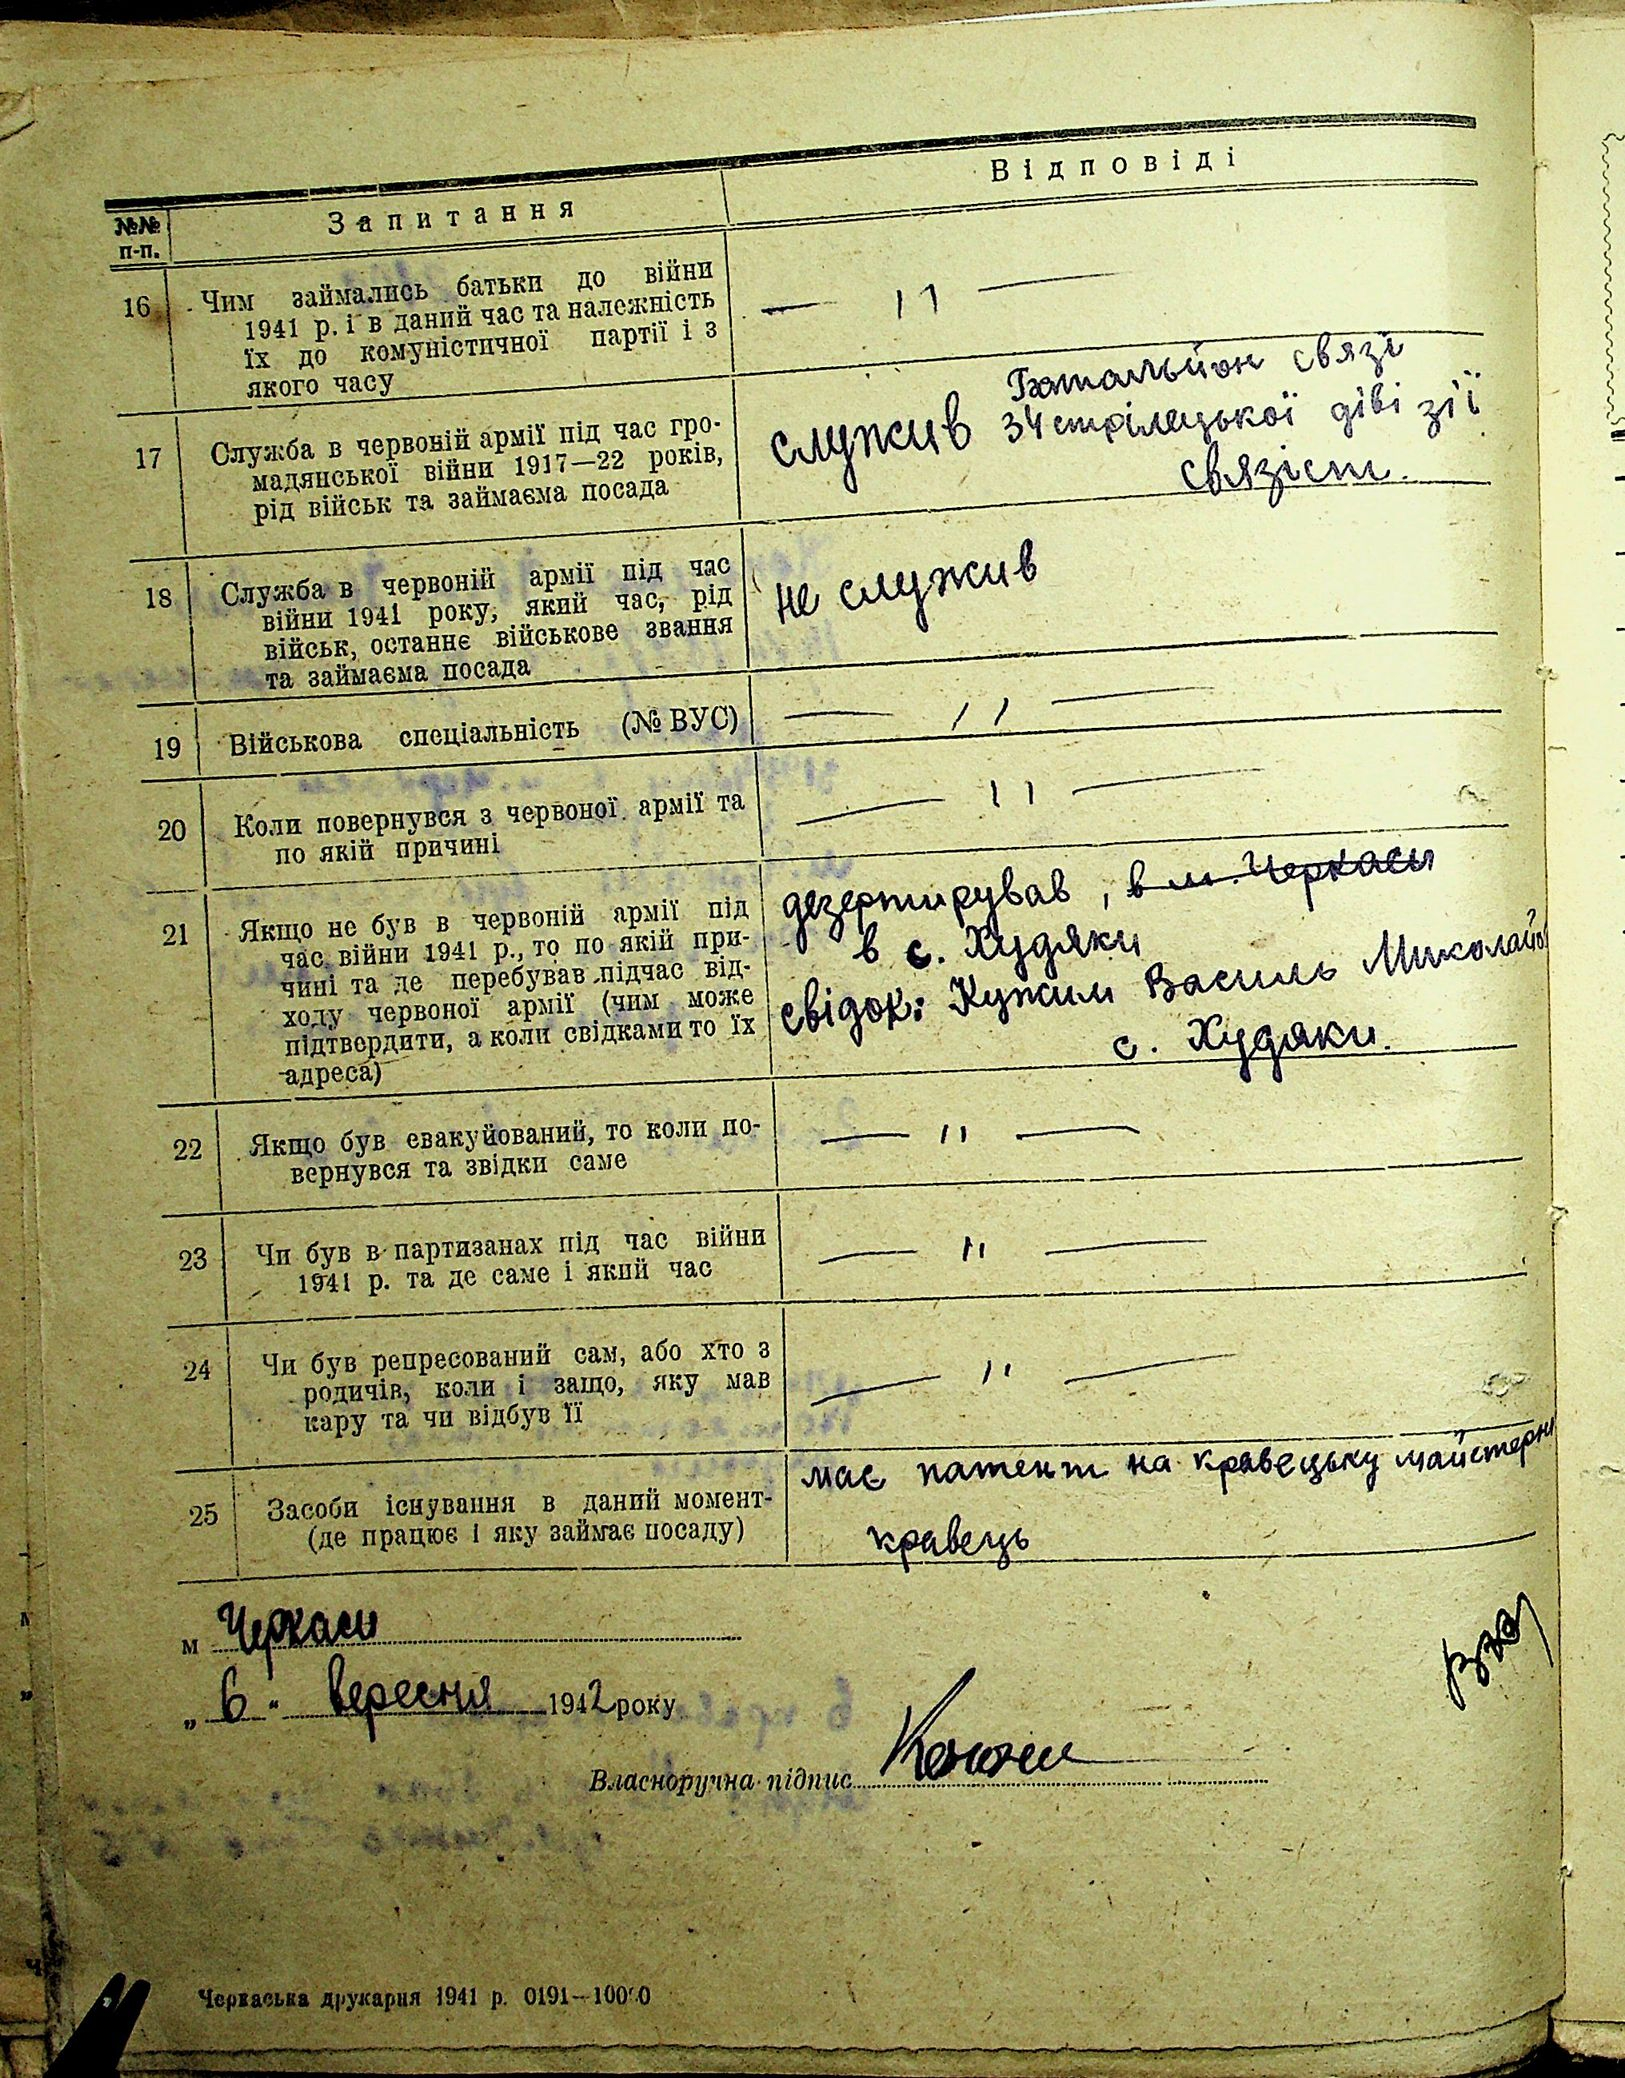 №№ п-п.
Запитання
Відповіді
16
Чим займались батьки до війни
1941 р. і в даний час та належність
їх до комуністичної партії і з
якого часу
— 〃 —
17
Служба в червоній армії під час гро-
мадянської війни 1917—22 років,
рід військ та займаєма посада
Батальйон связі
служив 34 стрілецької дівізії
связіст.
18
Служба в червоній армії під час
війни 1941 року, який час, рід
військ, останнє військове звання
та займаєма посада
не служив
19
Військова спеціальність (№ ВУС)
— 〃 —
20
Коли повернувся з червоної армії та
по якій причині
— 〃 —
21
Якщо не був в червоній армії під
час війни 1941 р., то по якій при-
чині та де перебував підчас від-
ходу червоної армії (чим може
підтвердити, а коли свідками то їх
адреса)
дезертирував, в м. Черкаси
в с. Худяки
свідок: Кужим Василь Миколайов
с. Худяки.
22
Якщо був евакуйований, то коли по-
вернувся та звідки саме
— 〃 —
23
Чи був в партизанах під час війни
1941 р. та де саме і який час
— 〃 —
24
Чи був репресований сам, або хто з
родичів, коли і защо, яку мав
кару та чи відбув її
— 〃 —
25
Засоби існування в даний момент-
(де працює і яку займає посаду)
має патент на кравецьку майстерн
кравець
м Черкаси
„ 6 " вересня 1942 року
Власноручна підпис
Черкаська друкарня 1941 р. 0191—10000